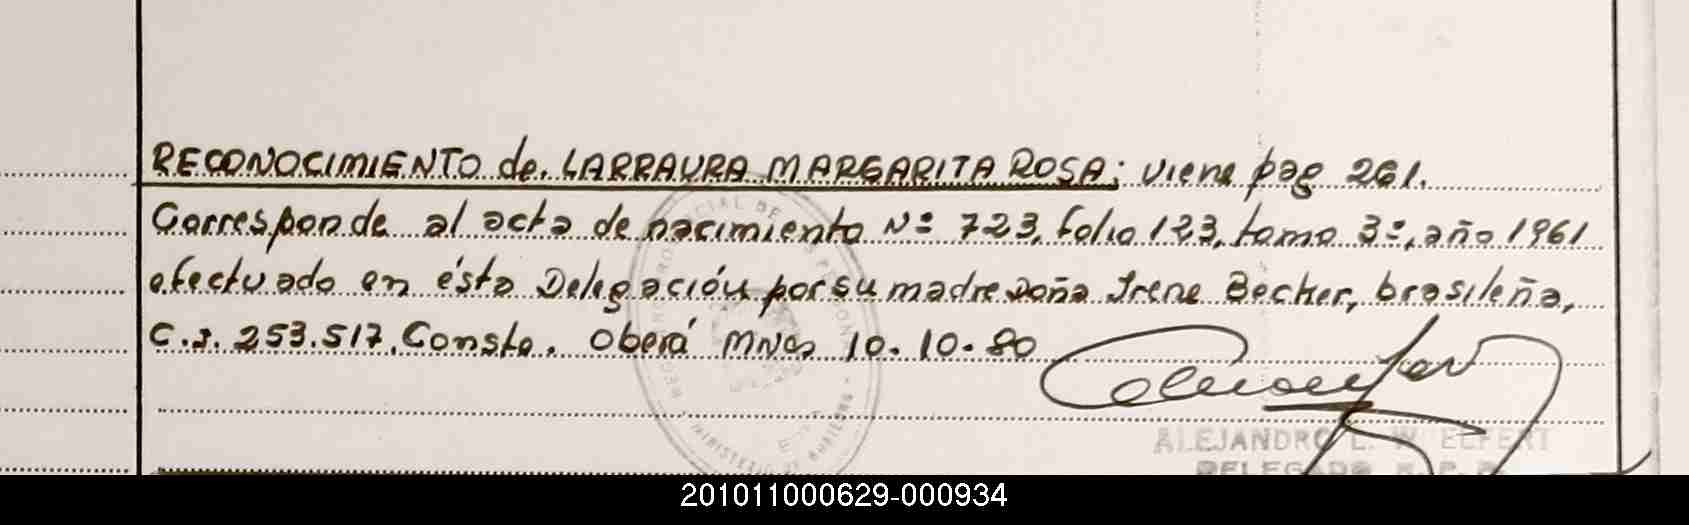 RECONOCIMIENTO de LARRAURA MARGARITA ROSA; viene pag 261.
Corresponde al acta de nacimiento Nº 723, folio 123, tomo 3º, año 1961
efectuado en ésta Delegación por su madre Doña Irene Becker, brasileña,
C.I. 253.517. Conste. Oberá Mnes 10.10.80
ALEJANDRO L. W. ELFERT
DELEGADO R. P. P.
201011000629-000934